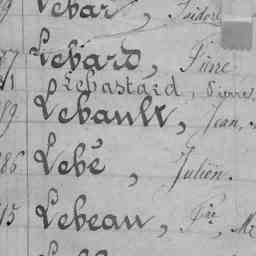 Lebar, Isidore
Lebard, Pierre
Lebastard, Pierre
Lebault, Jean,
Lebé, Julien.
Lebeau, Fre,